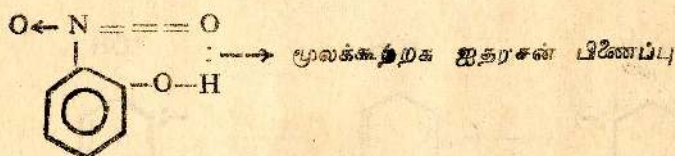 O← N ====O
⋮--→ மூலக்கூற்றக ஐதரசன் பிணைப்பு
-O—H